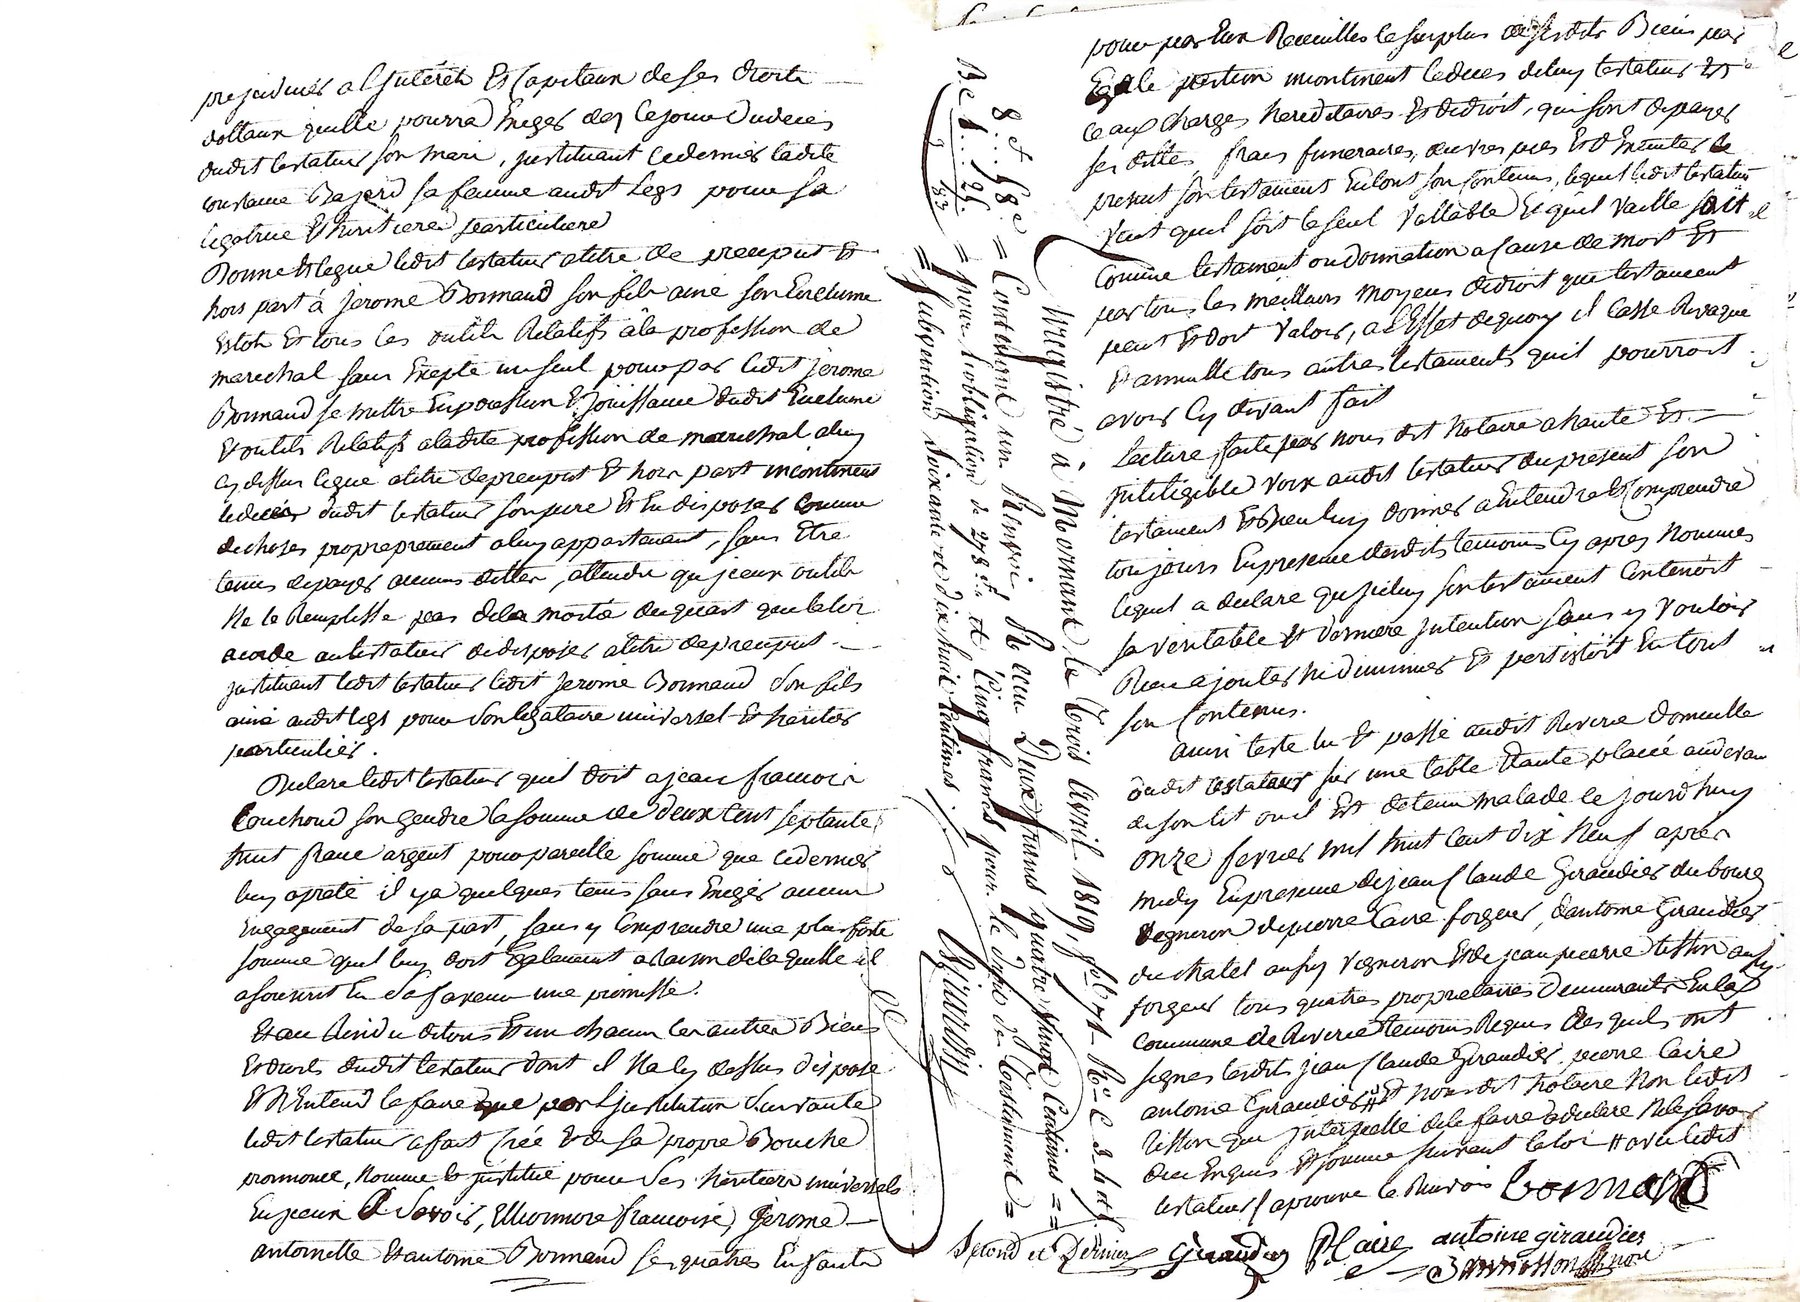 prejudicier a l'Jnterêt Et Capitaux de ses droits
dottaux quelle pourra Exiger dez le jour du deces
dudit testateur son mari, jnstituant ce dernier ladite
Bajard sa femme audit Legs pour sa
legatrice Et heritiere particuliere
Donne Et legue ledit testateur a titre de preciput Et
hors part à Jerome Bonnand son fils ainé son Enclume
Estok Et tous les outils Relatifs a la profession de
marechal sans Exepté un seul pour par ledit Jerome
Bonnand se mettre En possession Et jouissance dudit Enclume
Et outils Relatifs a ladite profession de marechal a luy
cy dessus legué a titre de preciput Et hors part incontinent
le deces dudit testateur son pere Et En disposer comme
de choses proprement a luy appartenant, sans Etre
tenus de payer aucuns dettes, attendu qu'jceux outils
Ne le Remplisse pas de la moitié du quart que la loi
acorde au testateur de disposer a titre de preciput
jnstituant ledit testateur ledit Jerome Bonnand son fils
ainé audit legs pour son legataire universel Et heritier
particulier.
Declare ledit testateur quil doit a jean francois
Couchoud son gendre la somme de deux Cent septante
huit franc argent pour pareille somme que ce dernier
luy a preté il y a quelques tems sans Exiger aucun
Engagement de sa part, sans y Comprendre une plus forte
somme quil luy doit Egalement a Raison de laquelle il
a souscrit En sa faveur une promesse.
Et au Residu de tous Et un chacun les autres Biens
Et droits dudit testateur dont il Na cy dessus disposé
Et N'Entend le faire que par l'jnstitution suivante
ledit testateur a fait Créé Et de sa propre Bouche
prononcé, nommé & jnstitué pour ses heritiers universels
En jceux Savoir, francoise, Jerome
antoinette Et antoine Bonnand ses quatres Enfants
8.e f. 58.e = Contenant un Renvoi, Recu Deux francs quatre Vingt Centimes =
= pour l'obligation de 278 f.. et Cinq francs pour le dixie du Testament =
= Subvention Soixante et dix huit Centimes.
Enregistré à Mornant le trois avril 1819, f.o 71 R.o C.
pour par Eux Receuilles le surplus de sesdits Biens par
Egale portion incontinent le deces de luy testateur Et
ce aux charges hereditaires Et de droit, qui sont de payer
ses dettes frais funeraires, œuvres pies Et d'Executer le
present son testament En tout son Contenu, lequel ledit testateur
veut quil soit le seul vallable Et quil vaille soit
Comme testament ou donnation a cause de mort Et
par tous les meilleurs moyens de droit que testament
peut Et doit Valoir, a l'Effet de quoy il Casse Revoque
Et annulle tous autres testaments quil pourrait
avoir Cy devant fait
Lecture faite par nous dit Notaire a haute Et
jnteligible voix audit testateur du present son
testament Et Bien luy donner a Entendre Et Comprendre
toujours En presence desdits temoins Cy apres nommes
lequel a declaré qu'jceluy son testament Contenoit
sa veritable Et derniere jntention sans y vouloir
Rien ajouter ni diminuer Et persistoit En tout
son Contenus.
ainsi testé lu Et passé audit Riverie domicille
dudit testateur sur une table Etante placée audevan
de son lit ou il Est detenu malade le jourd'huy
onze fevrier mil huit Cent dix Neuf apres
midy En presence de jean Claude Giraudier du bourg
Vigneron de pierre Caire forgeur, d'antoine Giraudier
du chatel aussy vigneron Et de jean pierre tisson aussy
forgeur tous quatres proprietaires demeurants En la
commune de Riverie temoins Requis desquels ont
signes lesdits jean Claude Giraudier, pierre Caire
antoine Giraudier # Et nous dit Notaire Non ledit
tisson qui jnterpellé de le faire a declaré Ne le savoir
de ce Enquis Et sommé suivant la loi # avec ledit
testateur, approuvé le Renvois Bonnand
Second et Dernier Giraudier P. Caire antoine giraudier